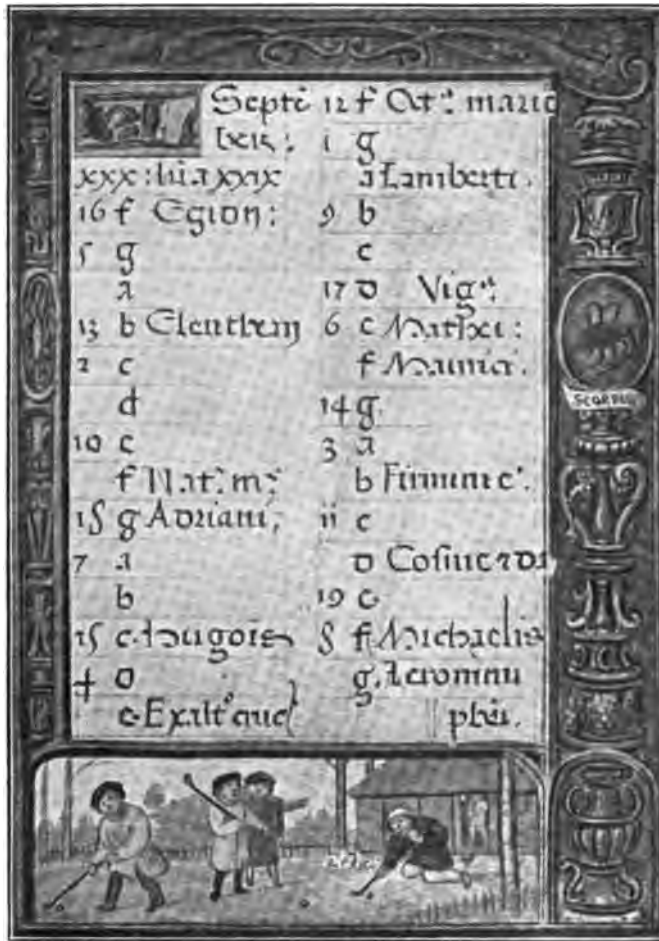 Septē
bris:
xxx: lūa xxix
16 f Egion:
5 g
a
13 b Eleutherij
2 c
d
10 e
f Nat: m:
15 g Adriani;
7 a
b
15 c Hugois
4 d
e Exalt° cruc
12 f Oct: marie
i g
a Lamberti.
9 b
c
17 d Vigᵃ:
6 e Mathei:
f Mauricii.
14 g.
3 a
b Firmini e'.
ii c
d Cosme 7 da
19 e
8 f Michaelis
g. Ieronimi
pbri.
SCORPIO